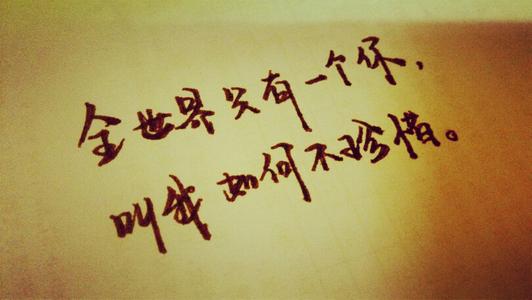 全世界只有一个你，
叫我如何不珍惜。